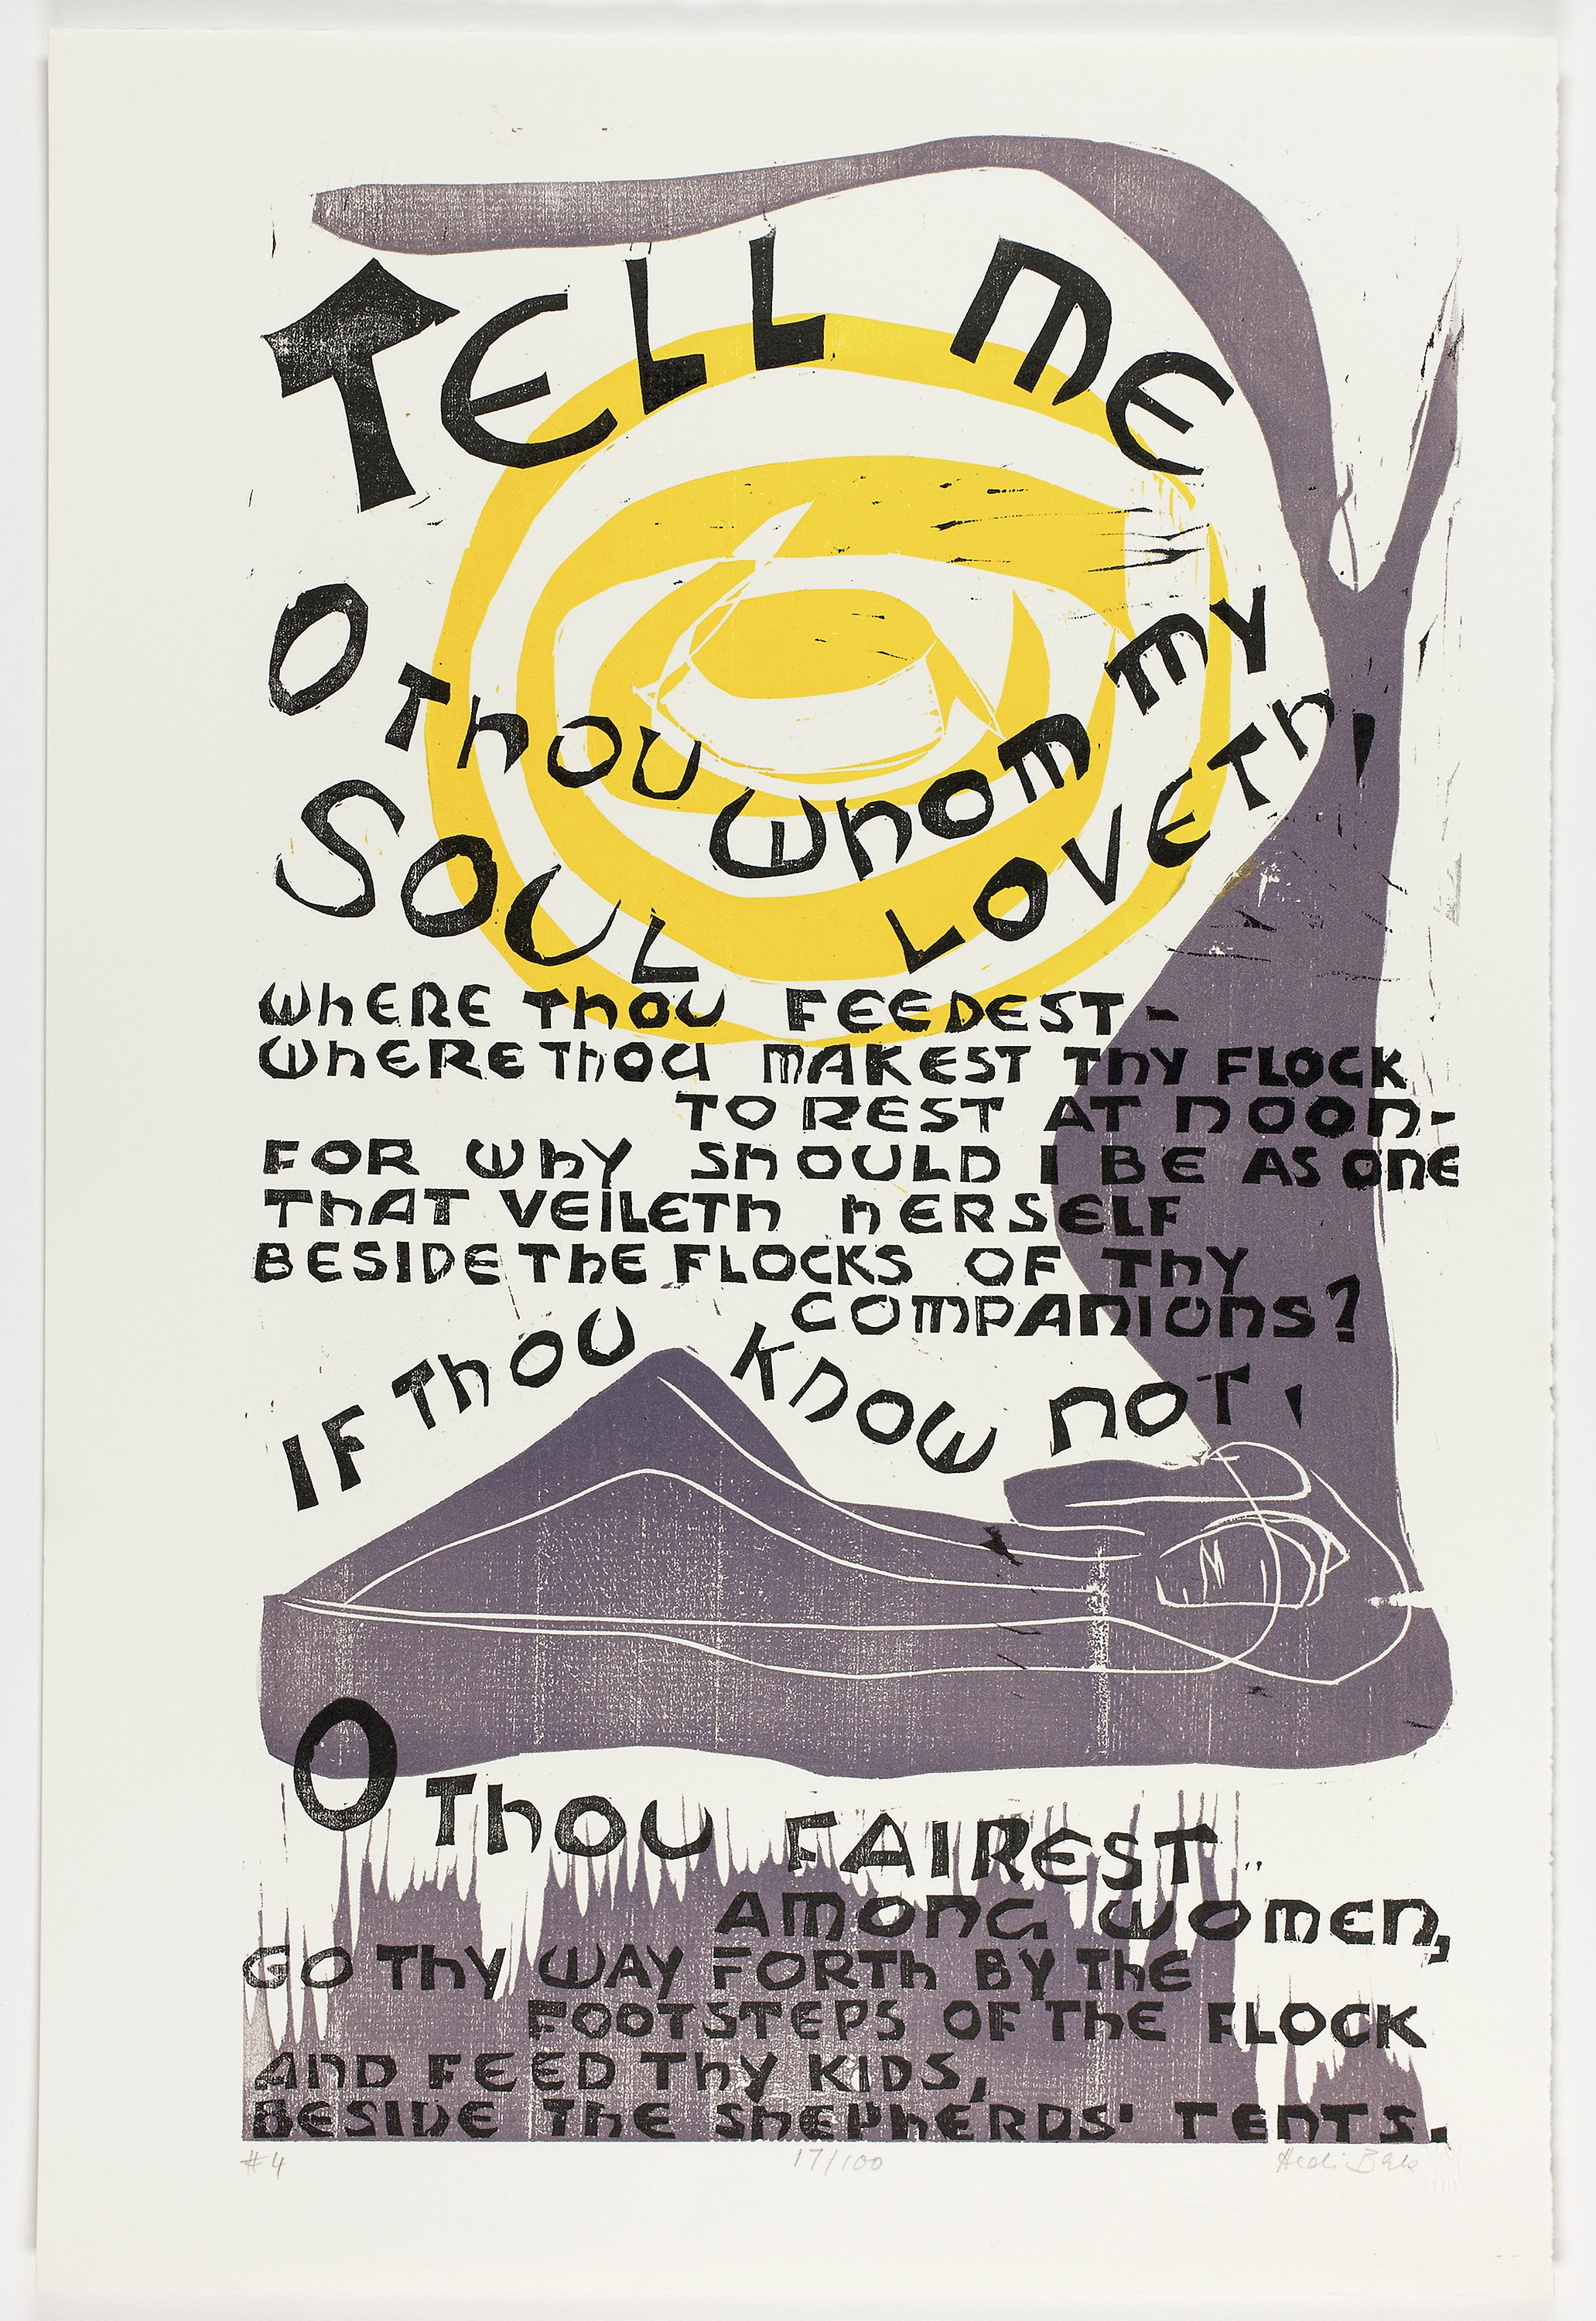 TELL ME
O Thou whom my
SOUL LOVETh,
WhERE ThOU FEEDEST-
WhERE ThOU MAKEST ThY FLOCK
TO REST AT NOON-
FOR WhY ShOULD I BE AS ONE
ThAT VEILETh hERSELF
BESIDE ThE FLOCKS OF ThY
COMPANIONS?
IF ThOU KNOW NOT,
O ThOU FAIREST
AMONG WOMEN,
GO ThY WAY FORTh BY ThE
FOOTSTEPS OF ThE FLOCK
AND FEED ThY KIDS,
BESIDE ThE ShEPhERDS' TENTS.
#4 17/100